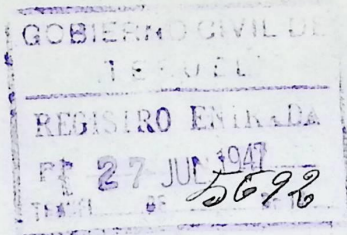 GOBIERNO CIVIL DE
TERUEL
REGISTRO ENTRADA
27 JUL 1947
5692